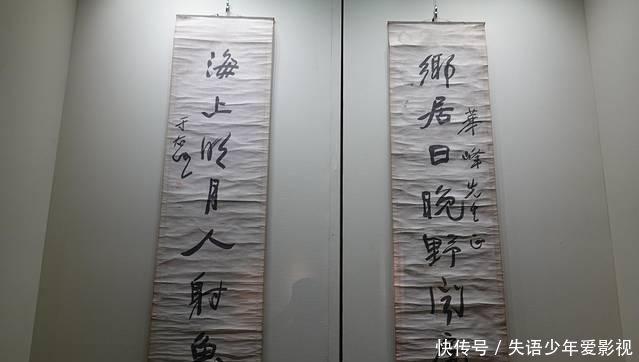 鄉居日晚野
華峰先生正
海上明月人射魚
于右任
快传号 / 失语少年爱影视